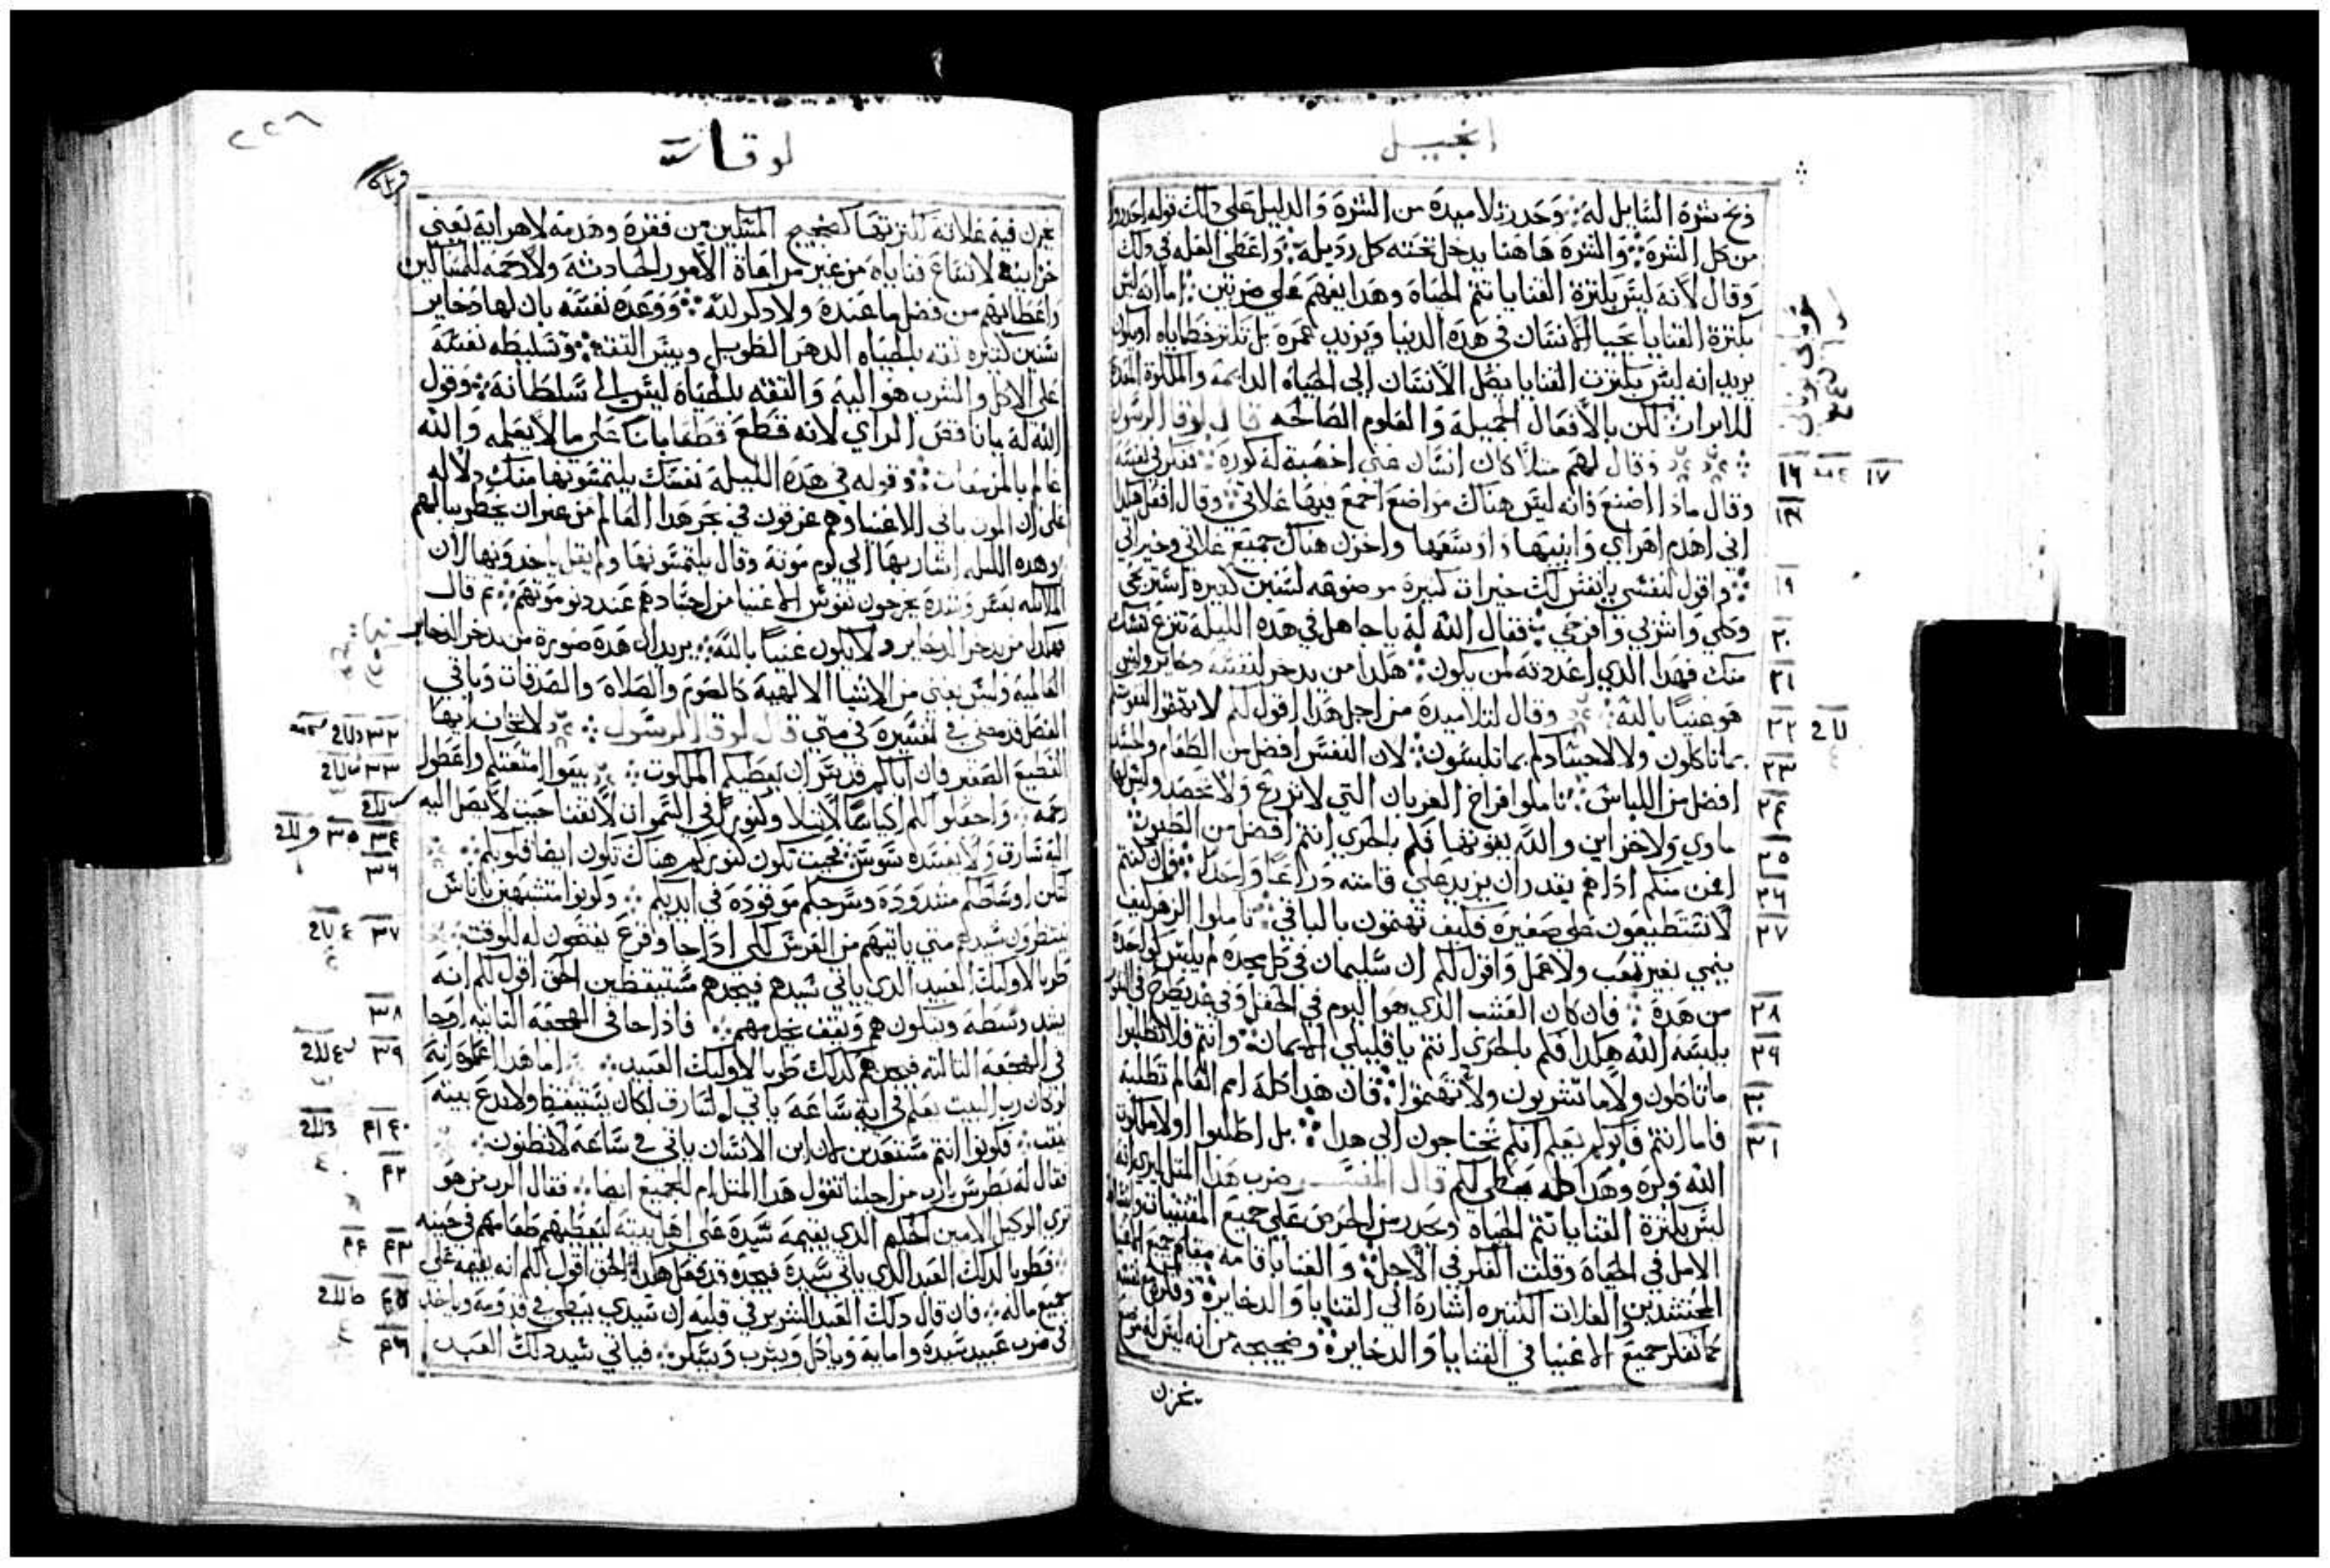 إنجيل
ذبح شره السايل له وحدر تلاميده من الشره والدليل على دلك قوله احدروا
من كل الشره والشره هاهنا يدخل تحته كل رديله واعطى العله في دلك
وقال لانه ليس بكثرة القنايا تتم الحياة وهدا يفهم على ضربين اما انه ليس
بكثرة القنايا يحيا الانسان في هده الدنيا ويزيد عمره بل تكثر خطاياه او يكون
يريد انه ليس بكثرت القنايا يصل الانسان الى الحياة الدايمة والملكوة المعد
للابرار لكن بالافعال الجميلة والعلوم الصالحه قال لوقا الرسول
وقال لهم مثلا كان انسان غني اخصبة له كورة ففكر في نفسه
وقال مادا اصنع فانه ليس هناك مواضع اجمع فيها غلاتي وقال افعل هكدا
اني اهدم اهراي وابنيها واوسعها واخزن هناك جميع غلاتي وخيراتي
واقول لنفسي يا نفس لك خيرات كثيرة موضوعه لسنين كثيرة استريحي
وكلي واشربي وافرحي فقال الله له يا جاهل في هده الليلة تنزع نفسك
منك فهدا الدي اعددته لمن يكون هكدا من يدخر لنفسه دخاير وليس
هو غنيا بالله وقال لتلاميدة من اجل هدا اقول لكم لا تهتموا لنفوسكم
بما تاكلون ولا لاجسادكم بما تلبسون لان النفس افضل من الطعام والجسد
افضل من اللباس تاملوا افراخ الغربان التي لا تزرع ولا تحصد وليس لها
ماوي ولا خزاين والله يقوتها فكم بالحري انتم افضل من الطيور
افمن منكم ادا هم يقدر ان يزيد على قامته دراعا واحدا فان كنتم
لا تستطيعون على صغيرة فكيف تهتمون بالباقي تاملوا الزهر كيف
ينمي بغير تعب ولا عمل واقول لكم ان سليمان في كل مجده لم يلبس كواحدة
من هده فان كان العشب الدي هو اليوم في الحقل وفي غد يطرح في التنور
يلبسه الله هكدا فكم بالحري انتم يا قليلي الايمان وانتم فلا تطلبوا
ما تاكلون ولا ما تشربون ولا تهتموا فان هدا كله امم العالم تطلبه
فاما انتم فابوكم يعلم انكم تحتاجون الى هدا بل اطلبوا اولا ملكوت
الله وبره وهدا كله يعطي لكم قال المفسر ضرب هدا المثل ليري انه
ليس بكثرة القنايا تتم الحياه وحدر من الحرص على جميع المقتنيات
الامل في الحياة وقلت الفكر في الاجل والقنايا
المحتشدين والغلات الكثيره اشارة الى القنايا والدخايرة
كما تفكر جميع الاغنيا في القنايا والدخايرة وضجيجه من انه ليس له موضع
يخزن
١٦ ١٧
١٨
١٩
٢٠
٢١
٢٢
٢٣
٢٤
٢٥
٢٦
٢٧
٢٨
٢٩
٣٠
٣١
لوقا
يخزن فيه غلاته لكثرتها كضجيج المقلين من فقره وهدمه لاهرايه يعني
خزاينه لاتساع قناياه من غير مراعاة الامور الحادثة ولا رحمة للمساكين
واعطايهم من فضل ما عنده ولا دكر لله ووعده نفسه بان لها دخاير
سنين كثيره ثقه بالحياه الدهر الطويل وبيس الثقة وتسليطه نفسه
على الاكل والشرب هو اليه والثقه بالحياة ليس الى سلطانه وقول
الله له يا ناقص الراي لانه قطع قطعا باتا على ما لا يعلمه والله
عالم بالمزمعات وقوله في هده الليلة نفسك يلتمسونها منك دلاله
على ان الموت ياتي الاغنيا وهم غرقون في بحر هدا العالم من غير ان يخطر ببالهم
وهده الليله اشار بها الى يوم موته وقال يلتمسونها ولم يقل ياخدونها لان
الملايكه بعسر وشدة يخرجون نفوس الاغنيا من اجسادهم عند دنو موتهم ثم قال
فهكدا من يدخر الدخاير ولا يكون غنيا بالله يريد ان هده صورة من يدخر الدخاير
العالمية وليس يغنى من الاشيا الالهية كالصوم والصلاة والصدقات وباقي
الفصل قد مضى تفسيره في متى قال لوقا الرسول لا تخاف ايها
القطيع الصغير فان اباكم قد سر ان يعطيكم الملكوت بيعوا امتعتكم واعطوا
رحمه واجعلوا لكم اكياسا لا تبلا وكنوزا في السموات لا تفنا حيث لا يصل اليه
اليه سارق ولا يفسده سوس بحيث تكون كنوزكم هناك تكون ايضا قلوبكم
لتكن اوساطكم مشدودة وسرجكم موقودة في ايديكم وكونوا متشبهين باناس
ينتظرون سيدهم متى ياتيهم من العرس لكي ادا جا وقرع يفتحون له للوقت
طوبا لاوليك العبيد الدي ياتي سيدهم فيجدهم مستيقظين الحق اقول لكم انه
يشد وسطه ويتكون هم ويقف يخدمهم فادا جا في الهجعة الثانيه او جا
في الهجعة الثالثه فيجدهم كدلك طوبا لاوليك العبيد اما هدا اعلموه انه
لو كان رب البيت يعلم في اية ساعة ياتي السارق لكان يستيقظ ولا يدع بيته
ينقب فكونوا انتم مستعدين لان ابن الانسان ياتي في ساعة لا تظنون
فقال له بطرس يا رب من اجلنا تقول هدا المثل ام للجميع ايضا فقال الرب من هو
تري الوكيل الامين الحكيم الدي يقيمه سيدة على اهل بيته ليعطيهم طعامهم في حينه
فطوبا لدلك العبد الدي ياتي سيدة فيجده قد فعل هكدا الحق اقول لكم انه يقيمه على
جميع ماله فان قال دلك العبد الشرير في قلبه ان سيدي يبطي في قدومه وياخد
في ضرب عبيد سيدة وامايه وياكل ويشرب ويسكر فياتي سيد دلك العبد
٣٢
٣٣
٣٤ ٣٥
٣٦
٣٧
٣٨
٣٩